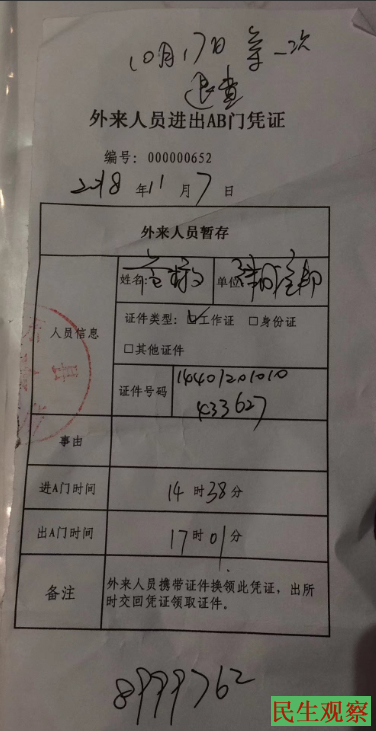 10月17日 第一次
退查
外来人员进出AB门凭证
编号：000000652
2018年11月7日
外来人员暂存
人员信息
姓名：
单位
证件类型：☑工作证 □身份证
□其他证件
证件号码
14401201010
433627
事由
进A门时间
14时38分
出A门时间
17时01分
备注
外来人员携带证件换领此凭证，出所
时交回凭证领取证件。
8999762
民生观察